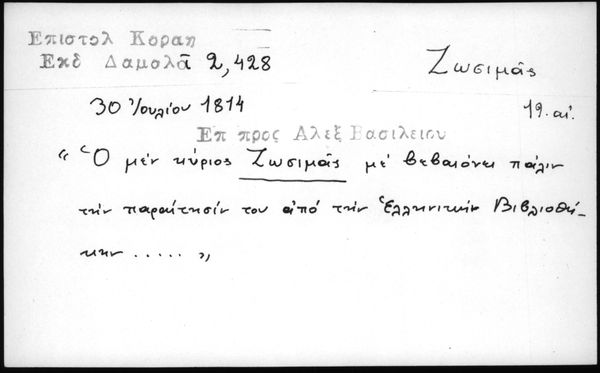 Επιστολ Κοραη
Εκδ Δαμαλᾶ 2,428
Ζωσιμᾶς
30 Ἰουλίου 1814
19. αἰ.
Επ προς Αλεξ Βασιλειου
"Ὁ μέν κύριος Ζωσιμᾶς μέ βεβαιόνει πάλιν
τήν παραίτησίν του ἀπό τήν Ἑλληνικήν Βιβλιοθή-
κην ..... "